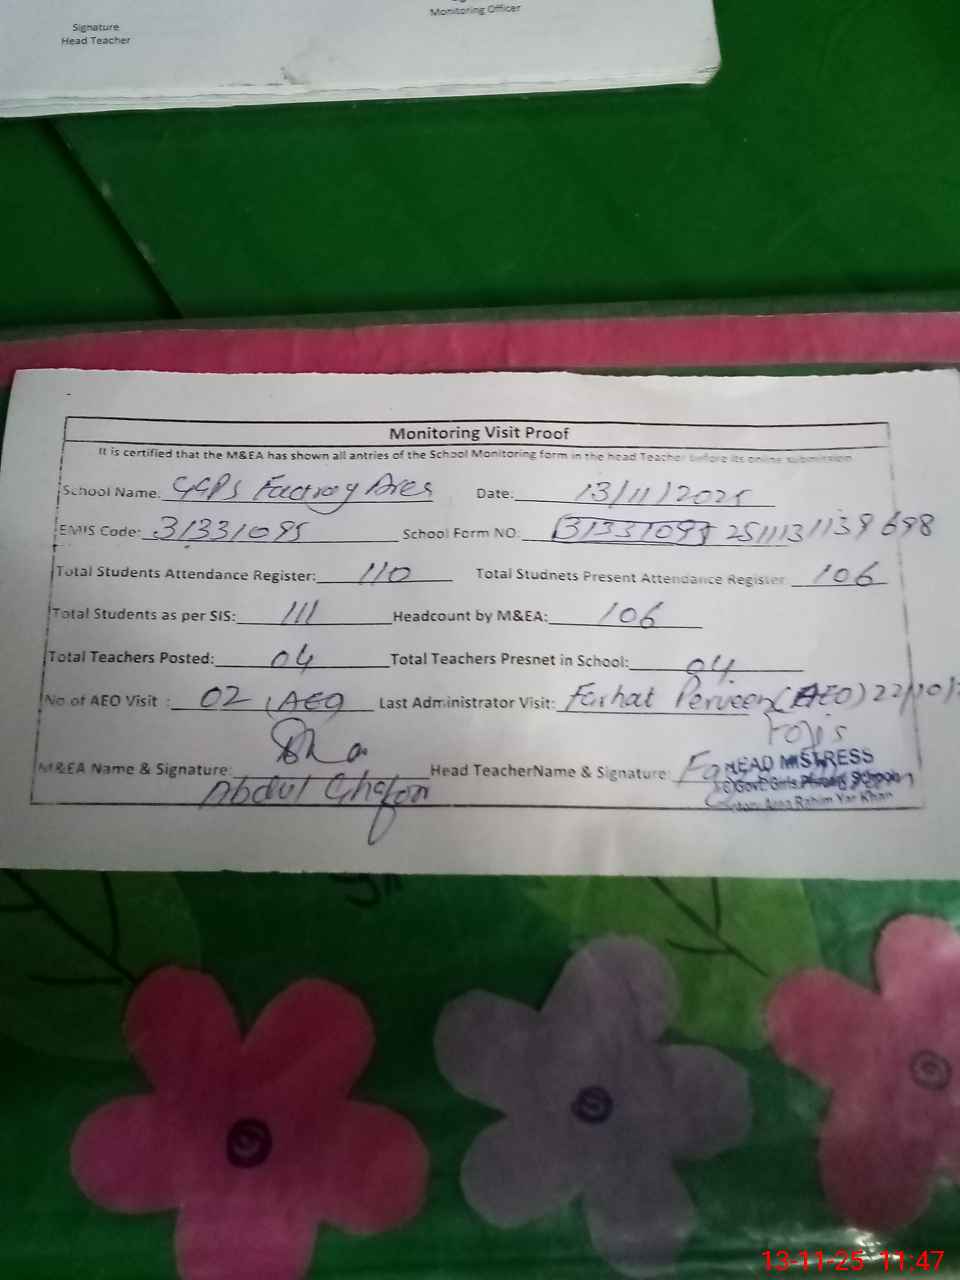 Signature
Head Teacher
Monitoring Officer
Monitoring Visit Proof
It is certified that the M&EA has shown all antries of the School Monitoring form in the head Teacher before its online submission
School Name: GGPS Factroy Area Date: 13/11/2025
EMIS Code: 31331095 School Form NO: 31331095 2511131139698
Total Students Attendance Register: 110 Total Studnets Present Attendance Register 106
Total Students as per SIS: 111 Headcount by M&EA: 106
Total Teachers Posted: 04 Total Teachers Presnet in School: 04
No of AEO Visit : 02 (AEO) Last Administrator Visit: Farhat Perveen (AEO) 22/10/2
M&EA Name & Signature: Head TeacherName & Signature:
Abdul Ghafor
HEAD MISTRESS
Govt: Girls School
Area Rahim Yar Khan
13-11-25 11:47